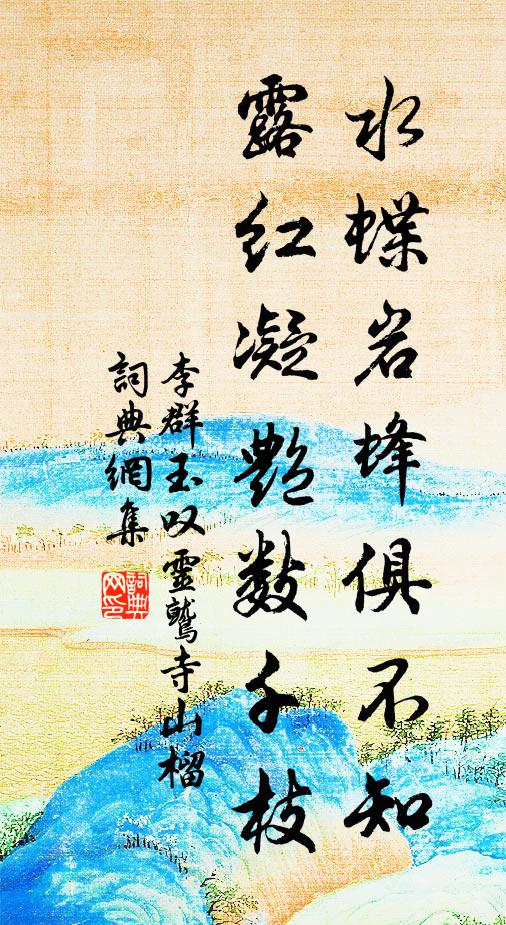 水蝶岩蜂俱不知
露红凝艳数千枝
李群玉叹靈鷲寺山榴
詞典網集
詞典网印